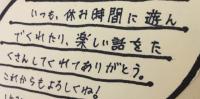 いつも、休み時間に遊ん
でくれたり、楽しい話をた
くさんしてくれてありがとう。
これからもよろしくね！